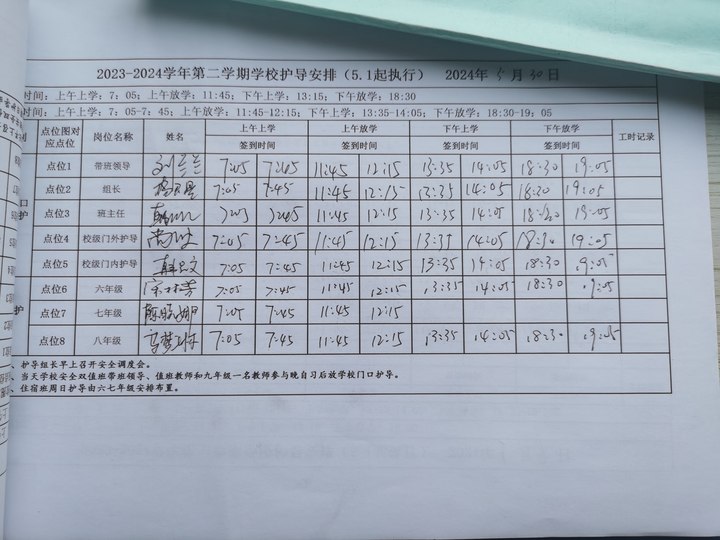 2023-2024学年第二学期学校护导安排（5.1起执行） 2024年 5 月 30 日
时间：上午上学：7：05；上午放学：11:45；下午上学：13:15；下午放学：18:30
时间：上午上学：7：05-7：45；上午放学：11:45-12:15；下午上学：13:35-14:05；下午放学：18:30-19:05
点位图对应点位 岗位名称 姓名 上午上学 上午放学 下午上学 下午放学 工时记录
签到时间 签到时间 签到时间 签到时间
点位1 带班领导 刘兰兰 7:05 7:45 11:45 12:15 13:35 14:05 18:30 19:05
点位2 组长 7:05 7:45 11:45 12:15 13:35 14:05 18:30 19:05
口 点位3 班主任 7:05 7:45 11:45 12:15 13:35 14:05 18:30 19:05
护 点位4 校级门外护导 7:05 7:45 11:45 12:15 13:35 14:05 18:30 19:05
点位5 校级门内护导 7:05 7:45 11:45 12:15 13:35 14:05 18:30 19:05
点位6 六年级 7:05 7:45 11:45 12:15 13:35 14:05 18:30 19:05
护 点位7 七年级 7:05 7:45 11:45 12:15
点位8 八年级 7:05 7:45 11:45 12:15 13:35 14:05 18:30 19:05
、护导组长早上召开安全调度会。
、当天学校安全双值班带班领导、值班教师和九年级一名教师参与晚自习后放学校门口护导。
、住宿班周日护导由六七年级安排布置。